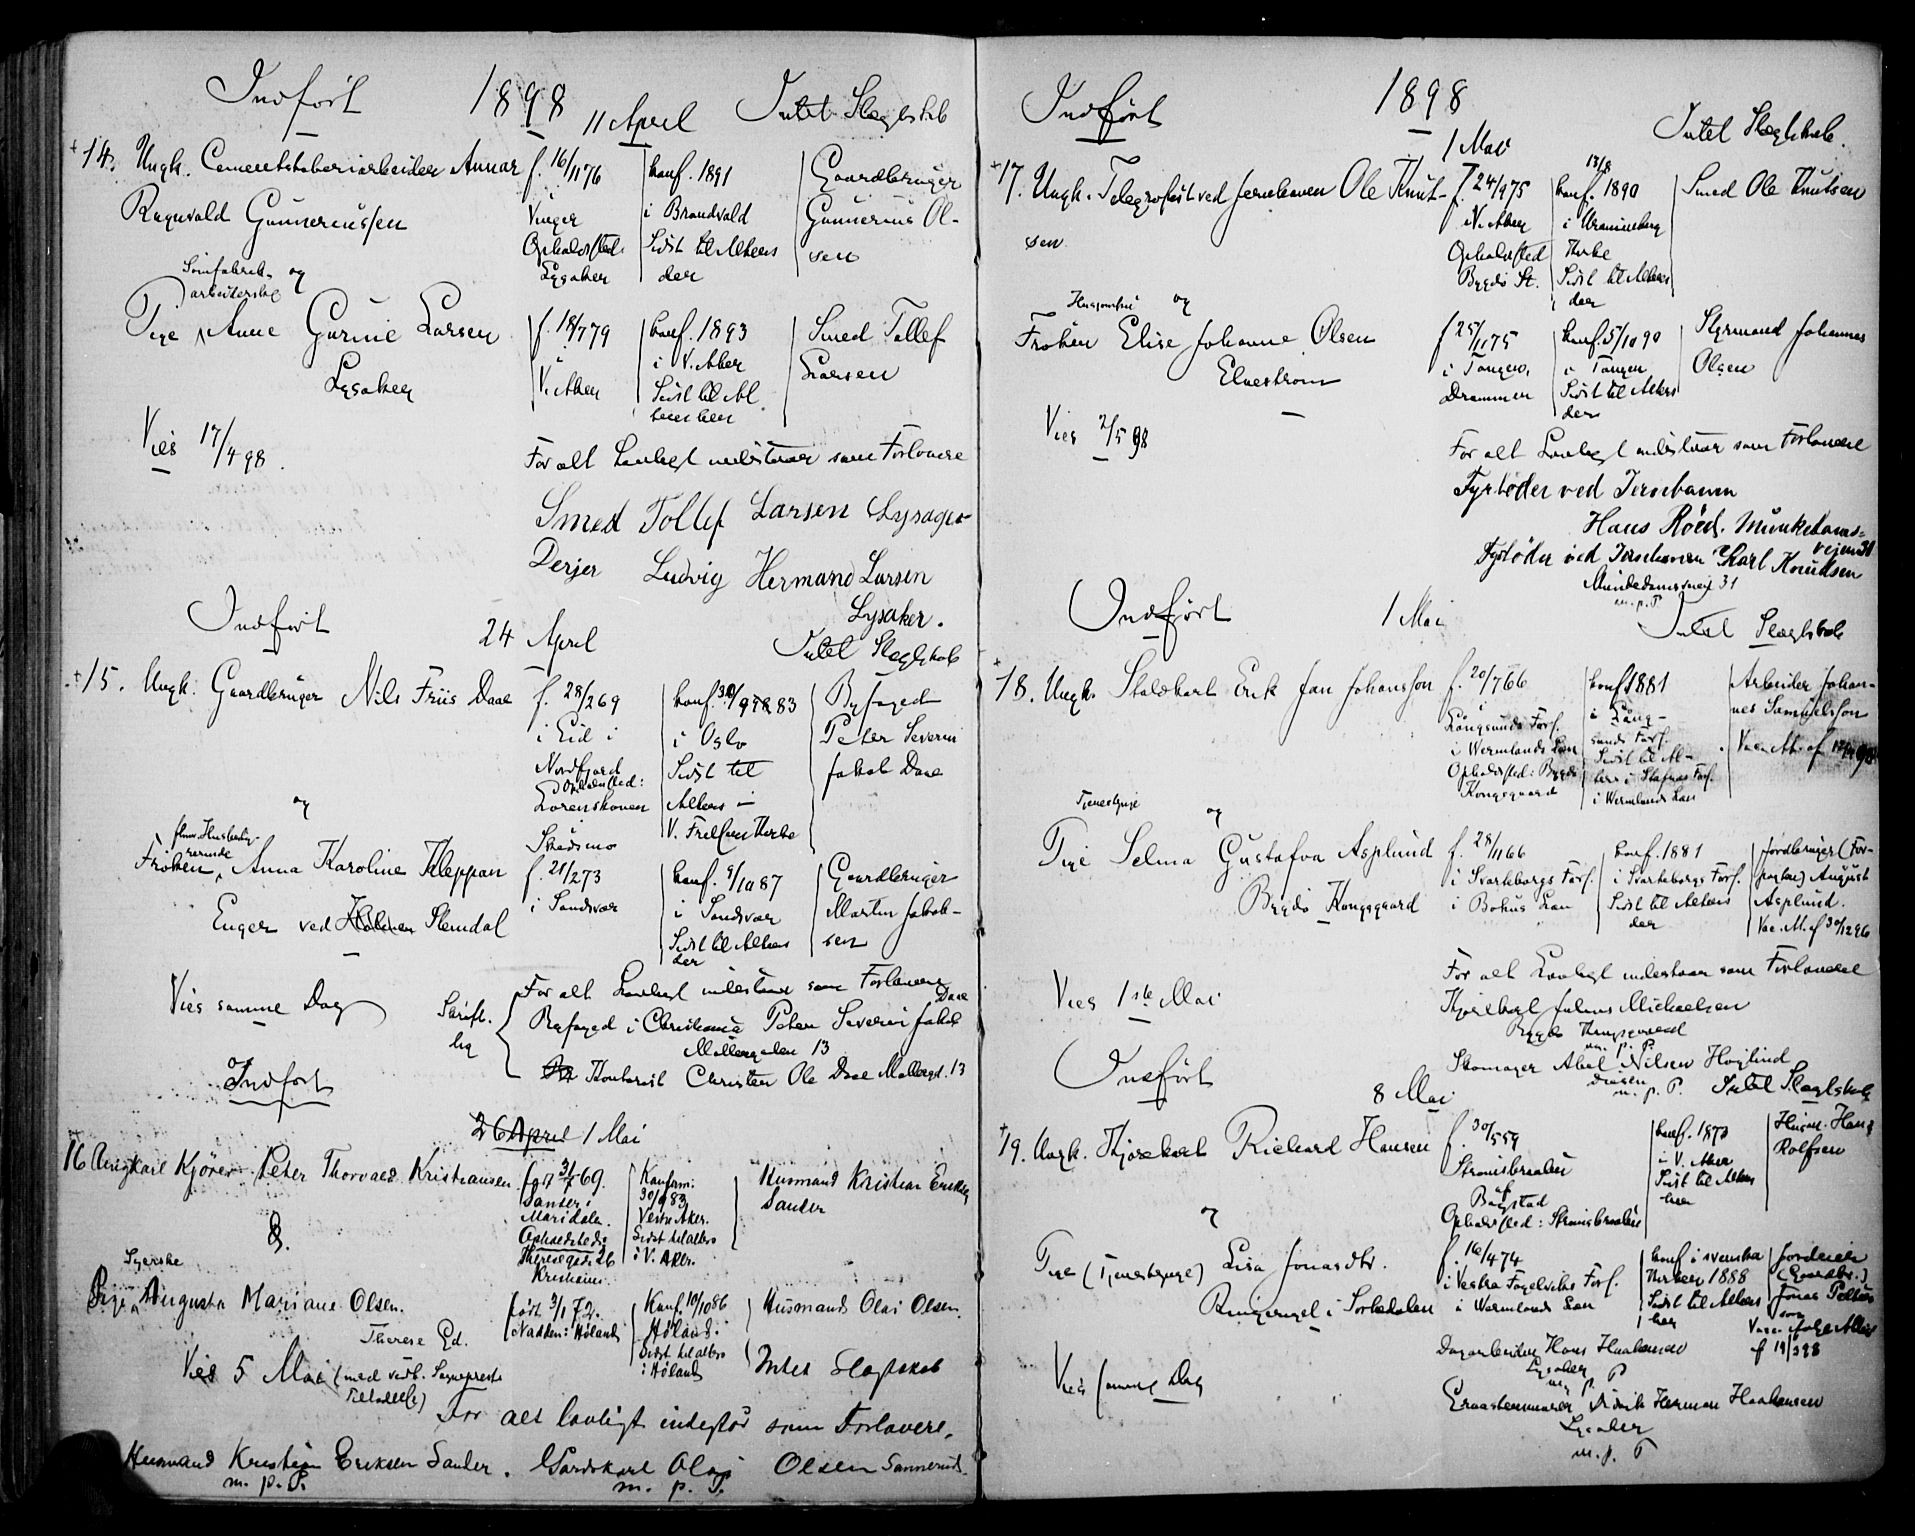 Indført 1898 11 April Intet Slægtskab
14. Ungk. Cementstøberiarbeider Annar f. 16/11 76 konf. 1891 Gaardbruger
Ragnvald Gunneriussen Vinger i Brandvald Gunnerius Ol-
Opholdssted: Sidst til Alters sen
Lysaker der
og
arbeiderske
Pige Anne Gurine Larsen f. 18/7 79 konf. 1893 Smed Tollef
Lysaker i V. Aker Larsen
V. Aker Sidst til Al
ters her
Vies 17/4 98.
For alt Lovligt indestaar som Forlovere
Smed Tollef Larsen Lysager
Ludvig Hermand Larsen
Lysaker.
Indført 24 April Intet Slægtskab
15. Ungk. Gaardbruger Nils Friis Daae f. 28/2 69 konf. 83 Byfoged
i Eid i i Oslo Peter Severin
Nordfjord Sidst til Jakob Daae
Opholdssted:
Lorenskoven Alters i
Skedsmo V. Frelsers Kirke
og
Frøken, Anna Karoline Kleppan f. 21/2 73 konf. 9/10 87 Gaardbruger
Enger ved Slemdal i Sandsvær i Sandsvær Martin Jakob-
Sidst til Alters sen
der
Vies samme Dag
Skrift-
lig
For alt Lovligt indestaar som Forlovere
Byfoged i Christiania Peter Severin Jakob Daae
Møllergaden 13
Kontorist Christen Ole Daae Møllergd. 13
Indført
26 April 1 Mai
16 Ungkarl Kjører Peter Thorvald Kristiansen født 69. Konfirm. Husmand Kristian Eriksen
Sander i 30/9 83 Sander
Maridalen. Vestre Aker.
Opholdsted: Sidst til alters
Theresegade 26 i V. Aker.
Kristiania
&.
Syerske
Pige Augusta Mariane Olsen. født 3/1 72. Konf. 10/10 86 Husmand Olai Olsen.
Therese Gd. Nadden i Høland Høland.
Sidst til alters
i Høland Intet Slægtskab
Vies 5 Mai (med vedk. Sogneprests
Tilladelse)
For alt lovligt indestår som Forlovere,
Husmand Kristian Eriksen Sander. Gårdskarl Olaf Olsen
m. p. P. m. p. P.
Indført 1898 1 Mai Intet Slægtskab.
17. Ungk. Telegrafist ved Jernbanen Ole Knut- f. 24/9 75 konf. 13/8 1890 Smed Ole Knutsen
sen V. Aker i Uranienborg
Opholdssted Kirke
Bygdø St. Sidst til Alters
der
og
Frøken Elise Johanne Olsen f. 25/11 75 konf. 5/10 90 Styrmand Johannes
Elvestrøm i Tangen, i Tangen Olsen
Drammen Sidst til Alters
der
Vies 2/5 98
For alt Lovligt indestaar som Forlovere
Fyrbøder ved Jernbanen
Hans Röed. Munkedams-
veien 31
Fyrbøder ved Jernbanen Karl Knudsen
Munkedamsvei 31
m. p. P
Indført 1 Mai Intet Slægtskab
18. Ungk. Staldkarl Erik Jan Johansson f. 20/7 66 konf. 1881 Arbeider Johan-
i i Lång- nes Samuelsson
Långsunds Fors. sunds Fors.
i Wermlands Län Sidst til Al-
Opholdssted: Bygdø ters i Fors.
Kongsgaard i Wermlands Län
Tjenestpige
og
Pige Selma Gustafva Asplund f. 28/11 66 konf. 1881 Jordbruger (For-
Bygdø Kongsgaard i Svarteborgs Fors. i Svarteborgs Fors. pagter) August
i Bohus Län Sidst til Alters Asplund.
der Vac. A. af 30/12 96
For alt Lovligt indestaar som Forlovere
Vies 1ste Mai
Julius Michaelsen
Bygdø Kongsgaard
m. p. P.
Skomager Abel Nilsen Høglind
m. p. P.
Indført 8 Mai Intet Slægtskab
19. Ungk. Kjørekarl Richard Hansen f. 30/5 59 konf. 1873 Husm. Hans
Strømsbraaten i V. Aker Rolfsen
Bogstad Sidst til Alters
Opholdssted: Strømsbraaten her
og
Pige (Tjenestpige) Lisa Jonasdtr. f. 16/4 74 konf i svenska
Ringerigel i Sørkedalen i Vestra Fogelviks Fors. Kirken 1888 (Gaardbr.)
i Wermlands Län Sidst til Alters Jonas
her
Vies samme Dag
Dagarbeider Hans Haakensen
Lysaker
m. p. P
Herman Haakensen
Lysaker
m. p. P